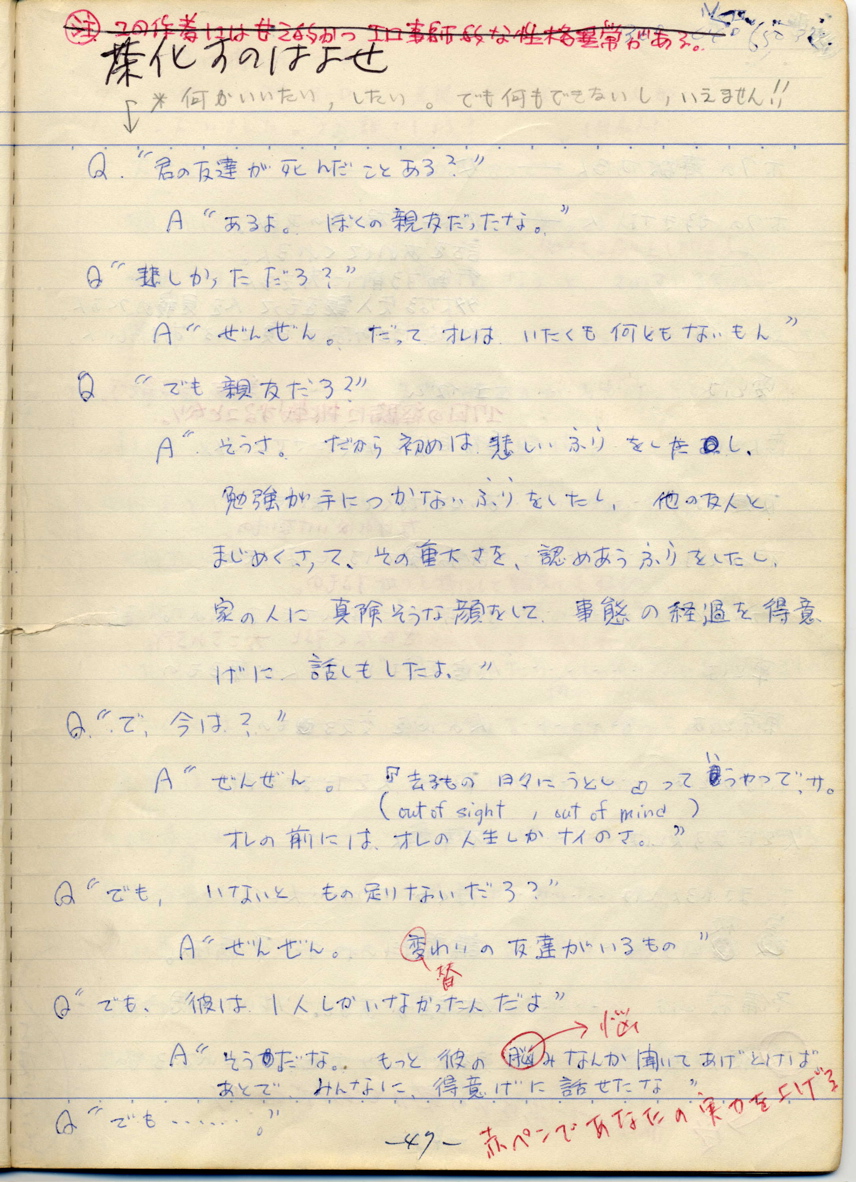 注 この作者には かつ エロ事師的な性格異常がある。
茶化すのはよせ
↓ * 何かいいたい, したい。でも何もできないし, いえません!!
Q. “君の友達が死んだことある?”
A “あるよ。ぼくの親友だったな。”
Q “悲しかっただろ?”
A “ぜんぜん。だって オレは、いたくも何ともないもん”
Q “でも親友だろ?”
A “そうさ。だから初めは悲しいふりをしたし、
勉強が手につかないふりをしたし、他の友人と
まじめくさって、その重大さを、認めあうふりをしたし、
家の人に 真険そうな顔をして、事態の経過を得意
げに、話しもしたよ。”
Q. “で、今は?”
A “ぜんぜん。『去るもの 日々にうとし』っていうやつで、サ。
(out of sight, out of mind)
オレの前には、オレの人生しかナイのさ。”
Q “でも, いないと もの足りないだろ?”
A “ぜんぜん。変わりの友達がいるもの”
替
Q “でも、彼は、1人しかいなかったんだよ”
悩
A “そうだな。もっと彼の 脳みなんか聞いてあげとけば
あとで、みんなに、得意げに話せたな”
Q “でも.......。”
赤ペンであなたの実力を上げる
-47-